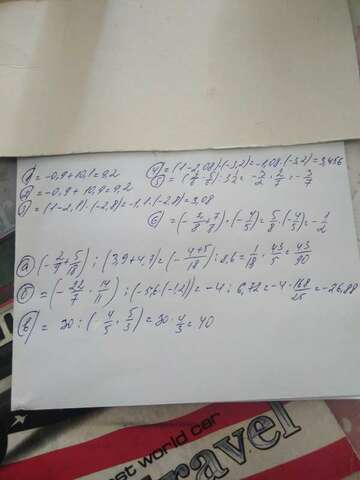 ① = -0,9 + 10,1 = 9,2
② = -0,9 + 10,9 = 9,2
③ = (1-2,1) · (-2,8) = -1,1 · (-2,8) = 3,08
④ = (1-2,08) · (-3,2) = -1,08 · (-3,2) = 3,456
⑤ = 3/7
⑥ = 5/8 · (-4/5) = -1/2
ⓐ (-2/9 + 5/18) : (3,9 + 4,7) = (-4+5/18) : 8,6 = 1/18 · 43/5 = 43/90
ⓑ = (-22/7 · 14/11) : (-5,6 · (-1,2)) = -4 : 6,72 = -4 · 168/25 = -26,88
ⓑ = 30 : = 30 · 4/3 = 40
best world car
Travel